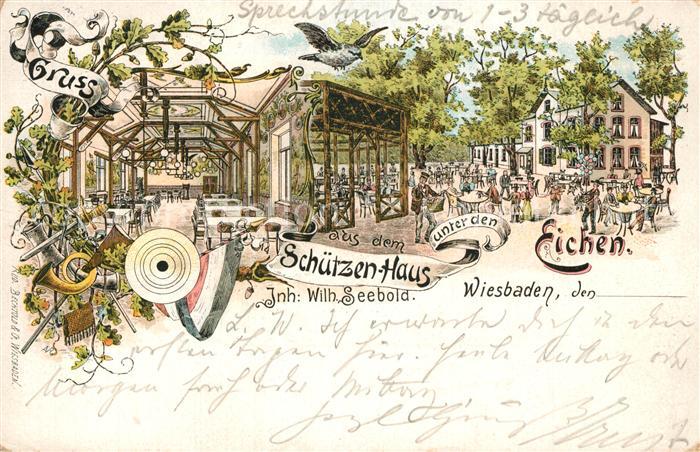 Sprechstunde von 1-3 täglich
Gruss
aus dem
Schützen-Haus
unter den
Eichen.
Jnh: Wilh. Seebold.
Wiesbaden, den
L. W. Ich erwarte Dich in den
ersten Tagen hier. Heute Mittag oder
Morgen früh oder Mittag